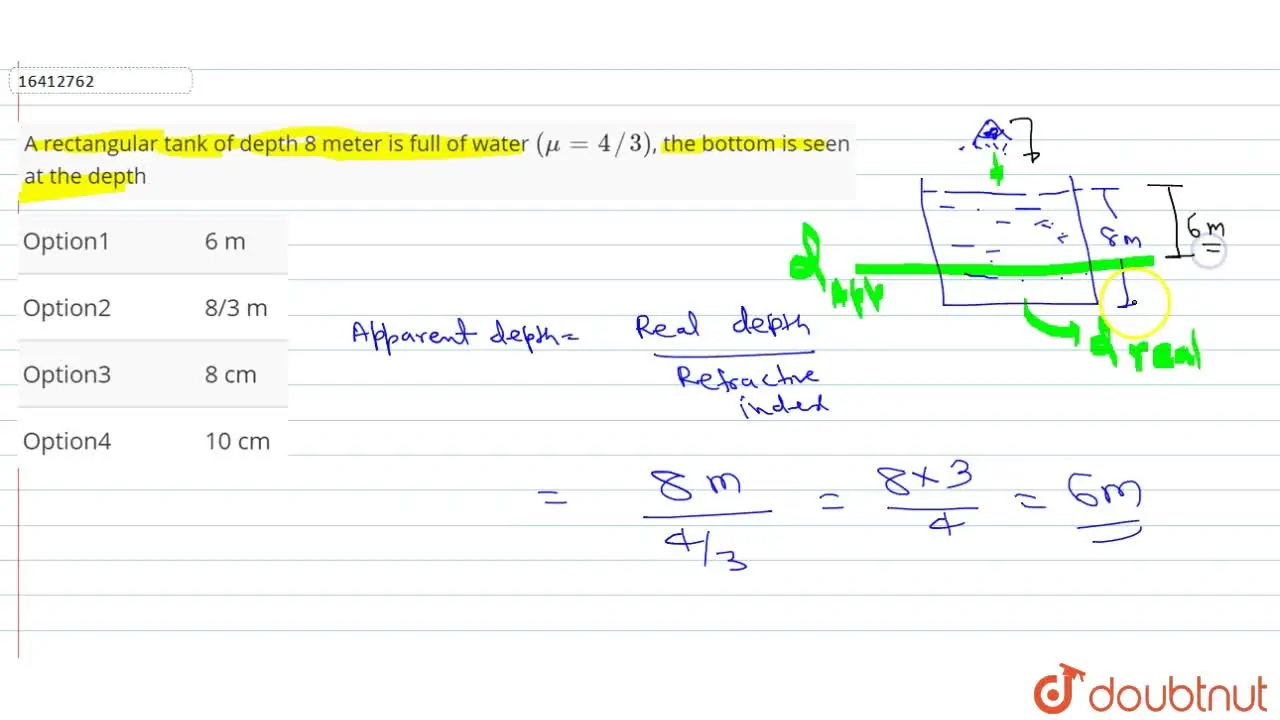 16412762
A rectangular tank of depth 8 meter is full of water (μ = 4/3), the bottom is seen
at the depth
Option1 6 m
Option2 8/3 m
Option3 8 cm
Option4 10 cm
6 m
8 m
d app
d real
Apparent depth = Real depth
Refractive
index
= 8 m / 4/3 = 8 × 3 / 4 = 6 m
doubtnut